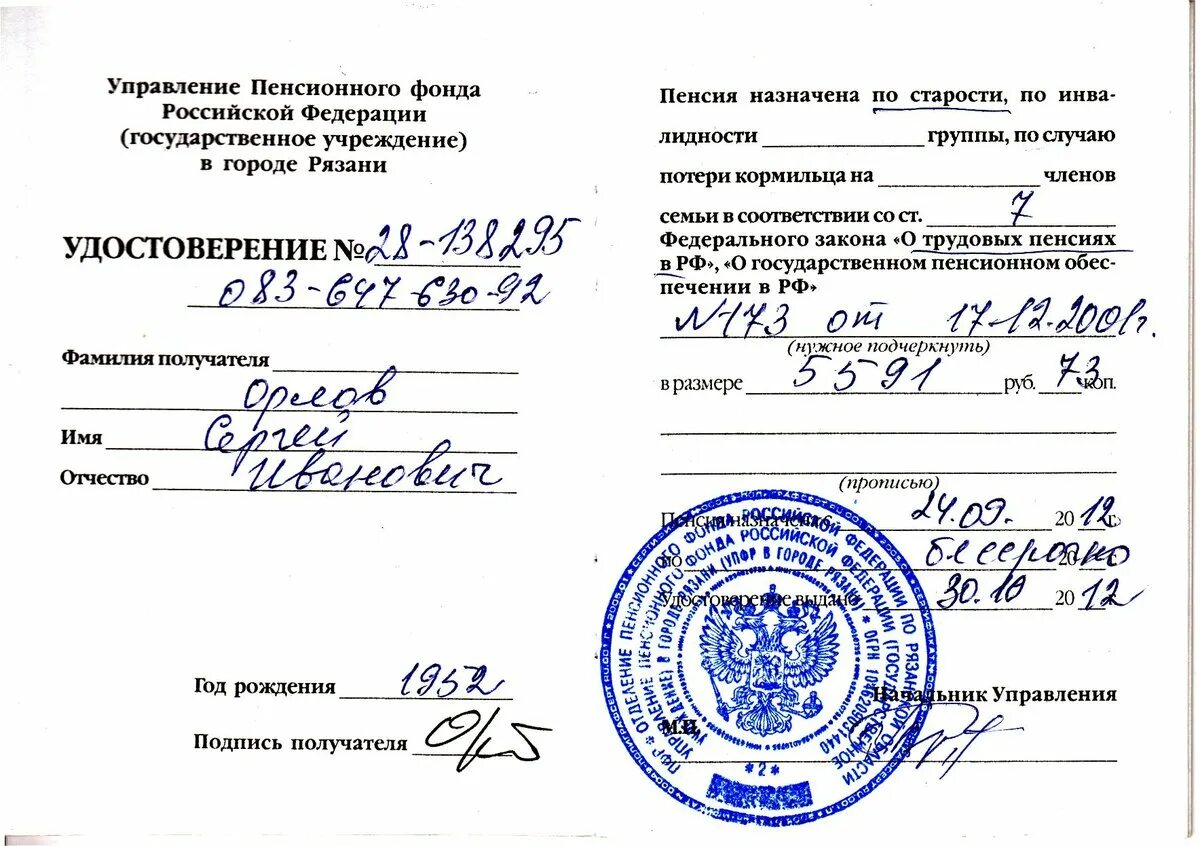 Управление Пенсионного фонда
Российской Федерации
(государственное учреждение)
в городе Рязани
УДОСТОВЕРЕНИЕ № 28-138295
083-647-630-92
Фамилия получателя
Орлов
Имя Сергей
Отчество Иванович
Год рождения 1952
Подпись получателя
Пенсия назначена по старости, по инва-
лидности группы, по случаю
потери кормильца на членов
семьи в соответствии со ст. 7
Федерального закона «О трудовых пенсиях
в РФ», «О государственном пенсионном обес-
печении в РФ»
№173 от 17.12.2001г.
(нужное подчеркнуть)
в размере 5591 руб. 73 коп.
(прописью)
Пенсия назначена с 24.09. 2012 г.
по бессрочно 20 г.
Удостоверение выдано 30.10 2012
Начальник Управления
М.П.
ОТДЕЛЕНИЕ ПЕНСИОННОГО ФОНДА РОССИЙСКОЙ ФЕДЕРАЦИИ ПО РЯЗАНСКОЙ ОБЛАСТИ
УПРАВЛЕНИЕ ПЕНСИОННОГО ФОНДА РОССИЙСКОЙ ФЕДЕРАЦИИ (ГОСУДАРСТВЕННОЕ
УЧРЕЖДЕНИЕ) В ГОРОДЕ РЯЗАНИ (УПФР В ГОРОДЕ РЯЗАНИ) * ОГРН
* 2 *